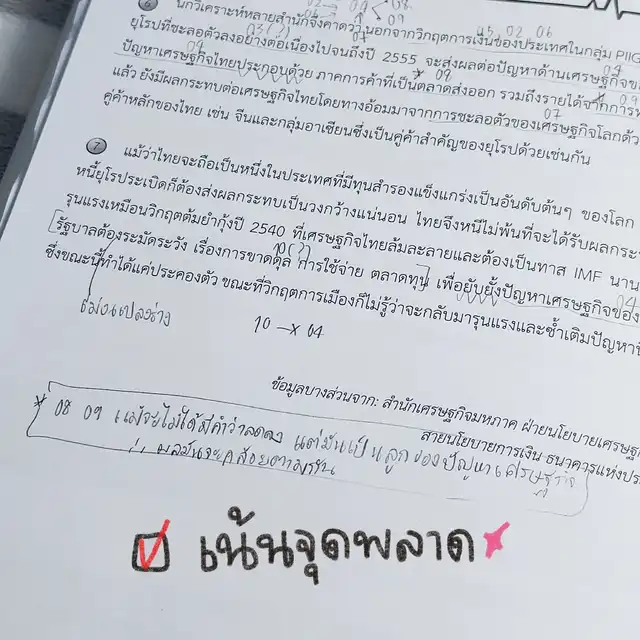 6 นักวิเคราะห์หลายสำนักจึงคาดว่านอกจากวิกฤตการเงินของประเทศในกลุ่ม PIIG
ยุโรปที่ชะลอตัวลงอย่างต่อเนื่องไปจนถึงปี 2555 จะส่งผลต่อปัญหาด้านเศรษฐกิจของ
ปัญหาเศรษฐกิจไทยประกอบด้วย ภาคการค้าที่เป็นตลาดส่งออก รวมถึงรายได้จากการท
แล้ว ยังมีผลกระทบต่อเศรษฐกิจไทยโดยทางอ้อมมาจากการชะลอตัวของเศรษฐกิจโลกด้ว
คู่ค้าหลักของไทย เช่น จีนและกลุ่มอาเซียนซึ่งเป็นคู่ค้าสำคัญของยุโรปด้วยเช่นกัน
7 แม้ว่าไทยจะถือเป็นหนึ่งในประเทศที่มีทุนสำรองแข็งแกร่งเป็นอันดับต้นๆ ของโลก
หนี้ยุโรประเบิดก็ต้องส่งผลกระทบเป็นวงกว้างแน่นอน ไทยจึงหนีไม่พ้นที่จะได้รับผลกระ
รุนแรงเหมือนวิกฤตต้มยำกุ้งปี 2540 ที่เศรษฐกิจไทยล้มละลายและต้องเป็นทาส IMF นาน
รัฐบาลต้องระมัดระวัง เรื่องการขาดดุล การใช้จ่าย ตลาดทุน เพื่อยับยั้งปัญหาเศรษฐกิจของ
ซึ่งขณะนี้ทำได้แค่ประคองตัว ขณะที่วิกฤตการเมืองก็ไม่รู้ว่าจะกลับมารุนแรงและซ้ำเติมปัญหา
10 → x 04
ข้อมูลบางส่วนจาก: สำนักเศรษฐกิจมหภาค ฝ่ายนโยบายเศรษฐกิ
สายนโยบายการเงิน ธนาคารแห่งประ
* 08 09 แม้จะไม่ได้มีคำว่าลดลง แต่มันเป็นลูกของปัญหาเศรษฐกิจ
เน้นจุดพลาด